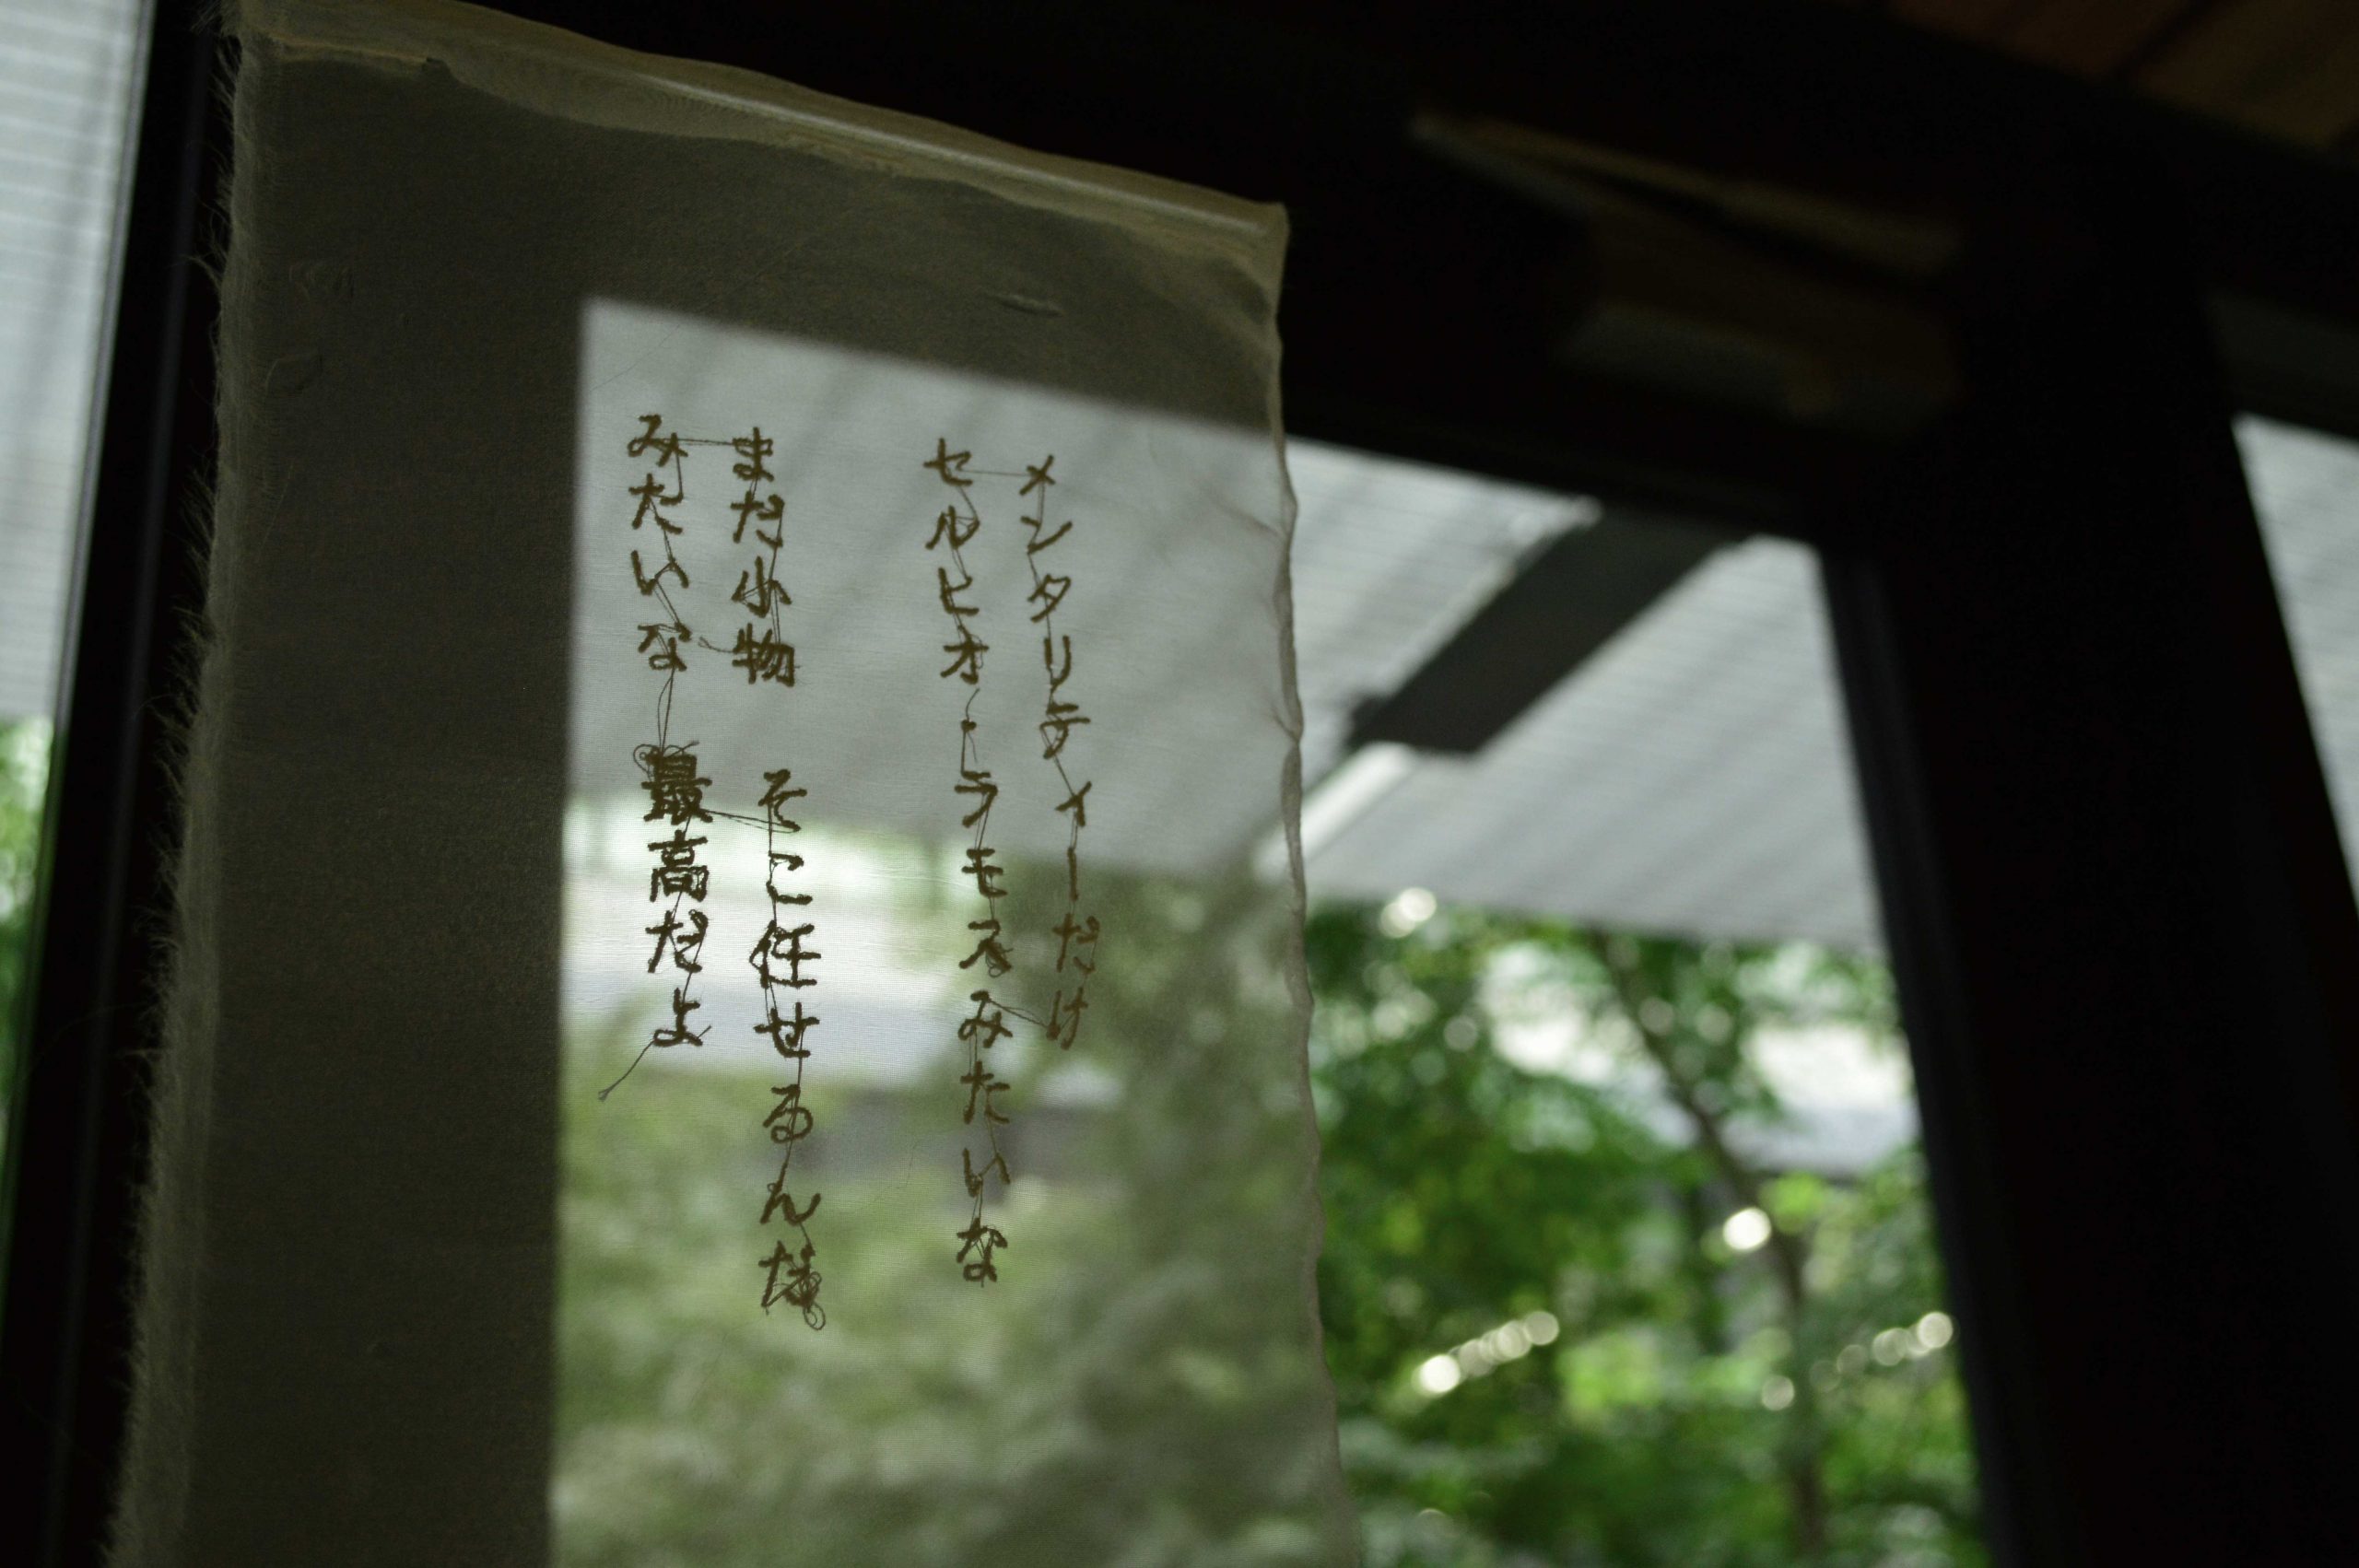 メンタリティーだけ
セルヒオ・ラモスみたいな
まだ小物 そこ任せるんだ
みたいな 最高だよ